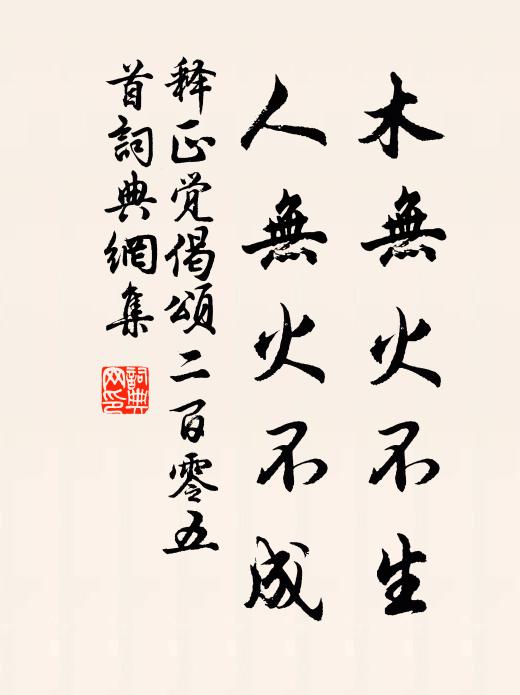 木無火不生
人無火不成
释正覚偈頌二百零五
首詞典網集
詞典网印